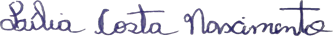 Lailia Costa Nascimento